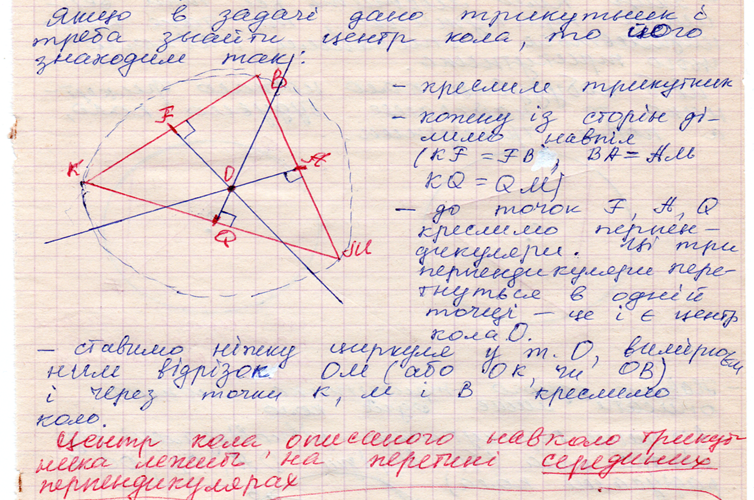 Якщо в задачі дано трикутник і
треба знайти центр кола, то його
знаходим так:
B
F
K
O
A
Q
M
– креслим трикутник
– кожну із сторін ді-
лимо навпіл
(KF = FB, BA = AM
KQ = QM)
– до точок F, A, Q
креслимо перпен-
дикуляри. Ці три
перпендикуляри пере-
тнуться в одній
точці – це і є центр
кола O.
– ставимо ніжку циркуля у т. O, вимірює
ним відрізок OM (або OK, чи OB)
і через точки K, M і B креслимо
коло.
Центр кола описаного навколо трикут
ника лежить на перетині серединих
перпендикулярах